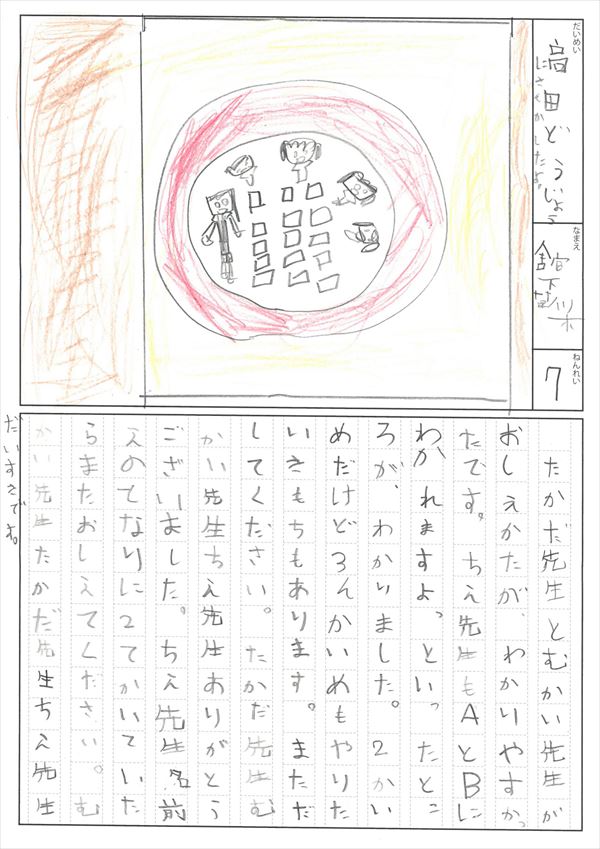 だいめい
高田どうじょう
にさんかしたよ。
なまえ
ねんれい
7
たかだ先生とむかい先生が
おしえかたが、わかりやすかっ
たです。ちえ先生もAとBに
わかれますよっといったとこ
ろが、わかりました。2かい
めだけど3んかいめもやりた
いきもちもあります。まただ
してください。たかだ先生む
かい先生ちえ先生ありがとう
ございました。ちえ先生名前
えのとなりに2てかいていた
らまたおしえてください。む
かい先生たかだ先生ちえ先生
だいすきです。